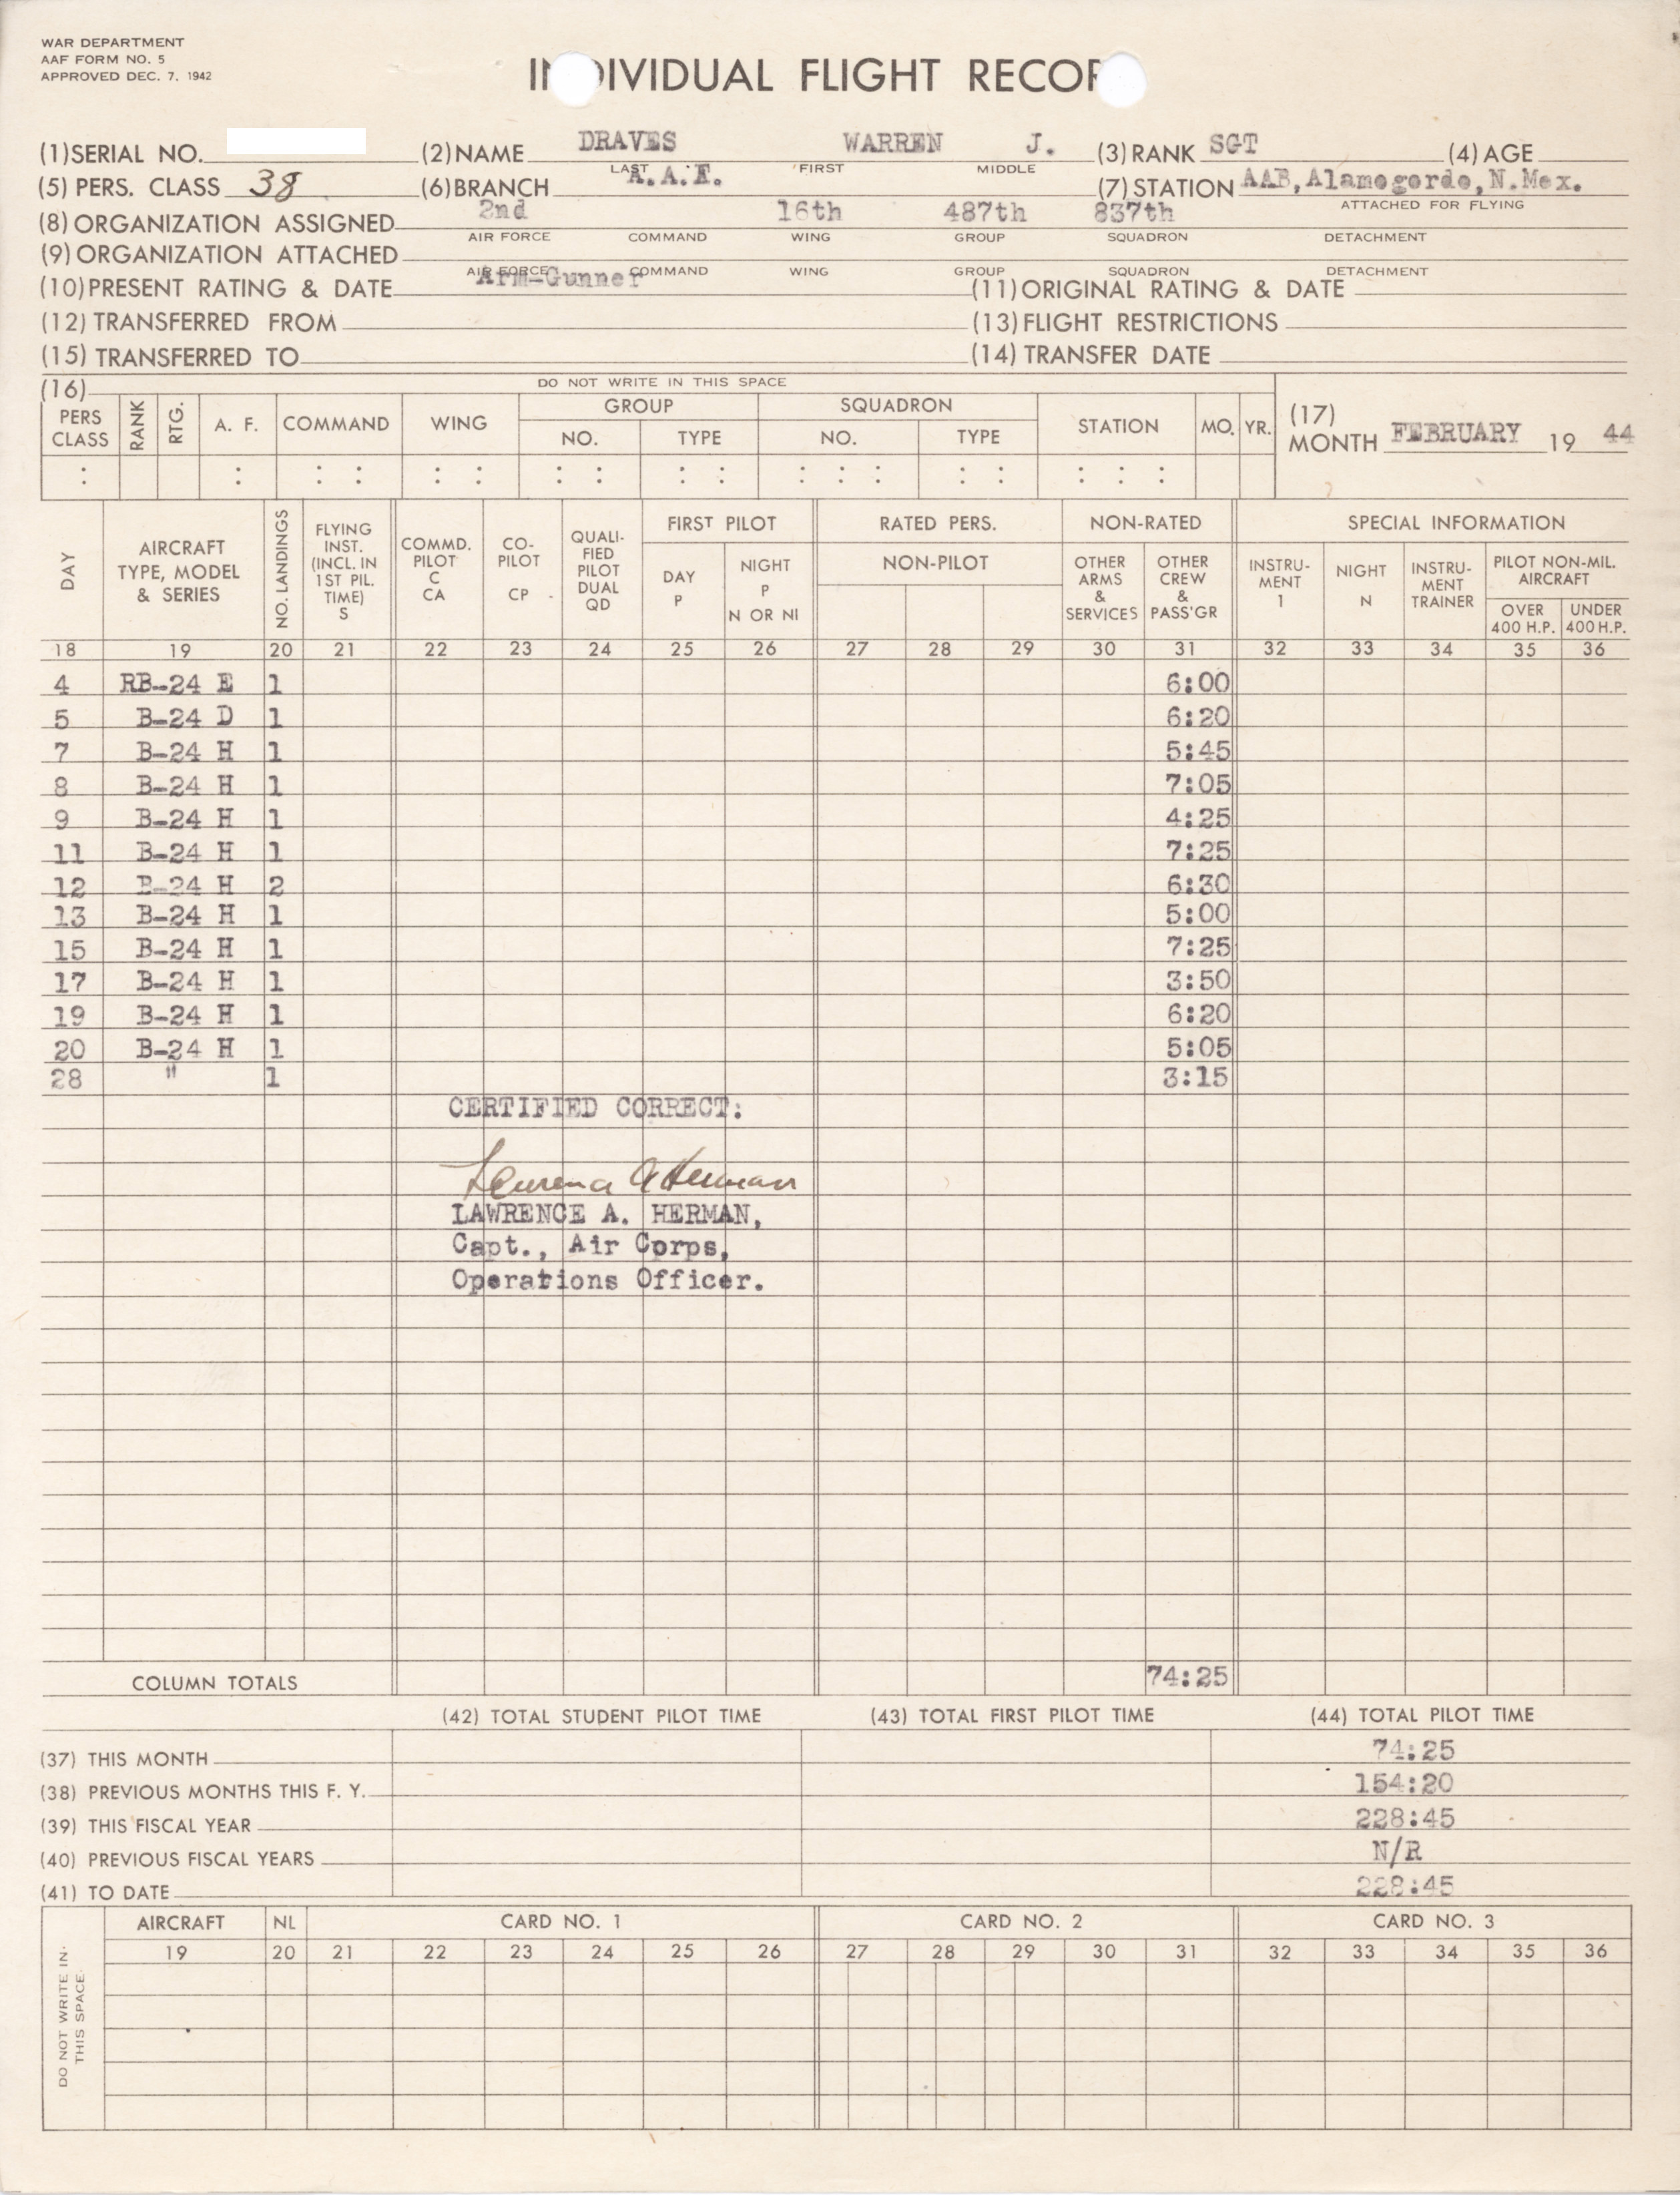 WAR DEPARTMENT
AAF FORM NO. 5
APPROVED DEC. 7, 1942
IN DIVIDUAL FLIGHT RECOR
(1) SERIAL NO. (2) NAME DRAVES WARREN J. (3) RANK SGT (4) AGE
LAST FIRST MIDDLE
(5) PERS. CLASS 38 (6) BRANCH A.A.F. (7) STATION AAB, Alamogordo, N.Mex.
ATTACHED FOR FLYING
(8) ORGANIZATION ASSIGNED 2nd 16th 487th 837th
AIR FORCE COMMAND WING GROUP SQUADRON DETACHMENT
(9) ORGANIZATION ATTACHED
AIR FORCE COMMAND WING GROUP SQUADRON DETACHMENT
(10) PRESENT RATING & DATE Arm-Gunner (11) ORIGINAL RATING & DATE
(12) TRANSFERRED FROM (13) FLIGHT RESTRICTIONS
(15) TRANSFERRED TO (14) TRANSFER DATE
(16) DO NOT WRITE IN THIS SPACE
PERS CLASS RANK RTG. A. F. COMMAND WING GROUP NO. TYPE SQUADRON NO. TYPE STATION MO. YR.
(17) MONTH FEBRUARY 19 44
DAY AIRCRAFT TYPE, MODEL & SERIES NO. LANDINGS FLYING INST. (INCL. IN 1ST PIL. TIME) S COMMD. PILOT C CA CO-PILOT CP QUALI-FIED PILOT DUAL QD FIRST PILOT DAY P NIGHT P N OR NI RATED PERS. NON-PILOT NON-RATED OTHER ARMS & SERVICES OTHER CREW & PASS'GR SPECIAL INFORMATION INSTRU-MENT I NIGHT N INSTRU-MENT TRAINER PILOT NON-MIL. AIRCRAFT OVER 400 H.P. UNDER 400 H.P.
18 19 20 21 22 23 24 25 26 27 28 29 30 31 32 33 34 35 36
4 RB-24 E 1 6:00
5 B-24 D 1 6:20
7 B-24 H 1 5:45
8 B-24 H 1 7:05
9 B-24 H 1 4:25
11 B-24 H 1 7:25
12 B-24 H 2 6:30
13 B-24 H 1 5:00
15 B-24 H 1 7:25
17 B-24 H 1 3:50
19 B-24 H 1 6:20
20 B-24 H 1 5:05
28 " 1 3:15
CERTIFIED CORRECT:
Lawrence A Herman
LAWRENCE A. HERMAN,
Capt., Air Corps,
Operations Officer.
COLUMN TOTALS 74:25
(42) TOTAL STUDENT PILOT TIME (43) TOTAL FIRST PILOT TIME (44) TOTAL PILOT TIME
(37) THIS MONTH 74:25
(38) PREVIOUS MONTHS THIS F. Y. 154:20
(39) THIS FISCAL YEAR 228:45
(40) PREVIOUS FISCAL YEARS N/R
(41) TO DATE 228:45
DO NOT WRITE IN THIS SPACE.
AIRCRAFT NL CARD NO. 1 CARD NO. 2 CARD NO. 3
19 20 21 22 23 24 25 26 27 28 29 30 31 32 33 34 35 36